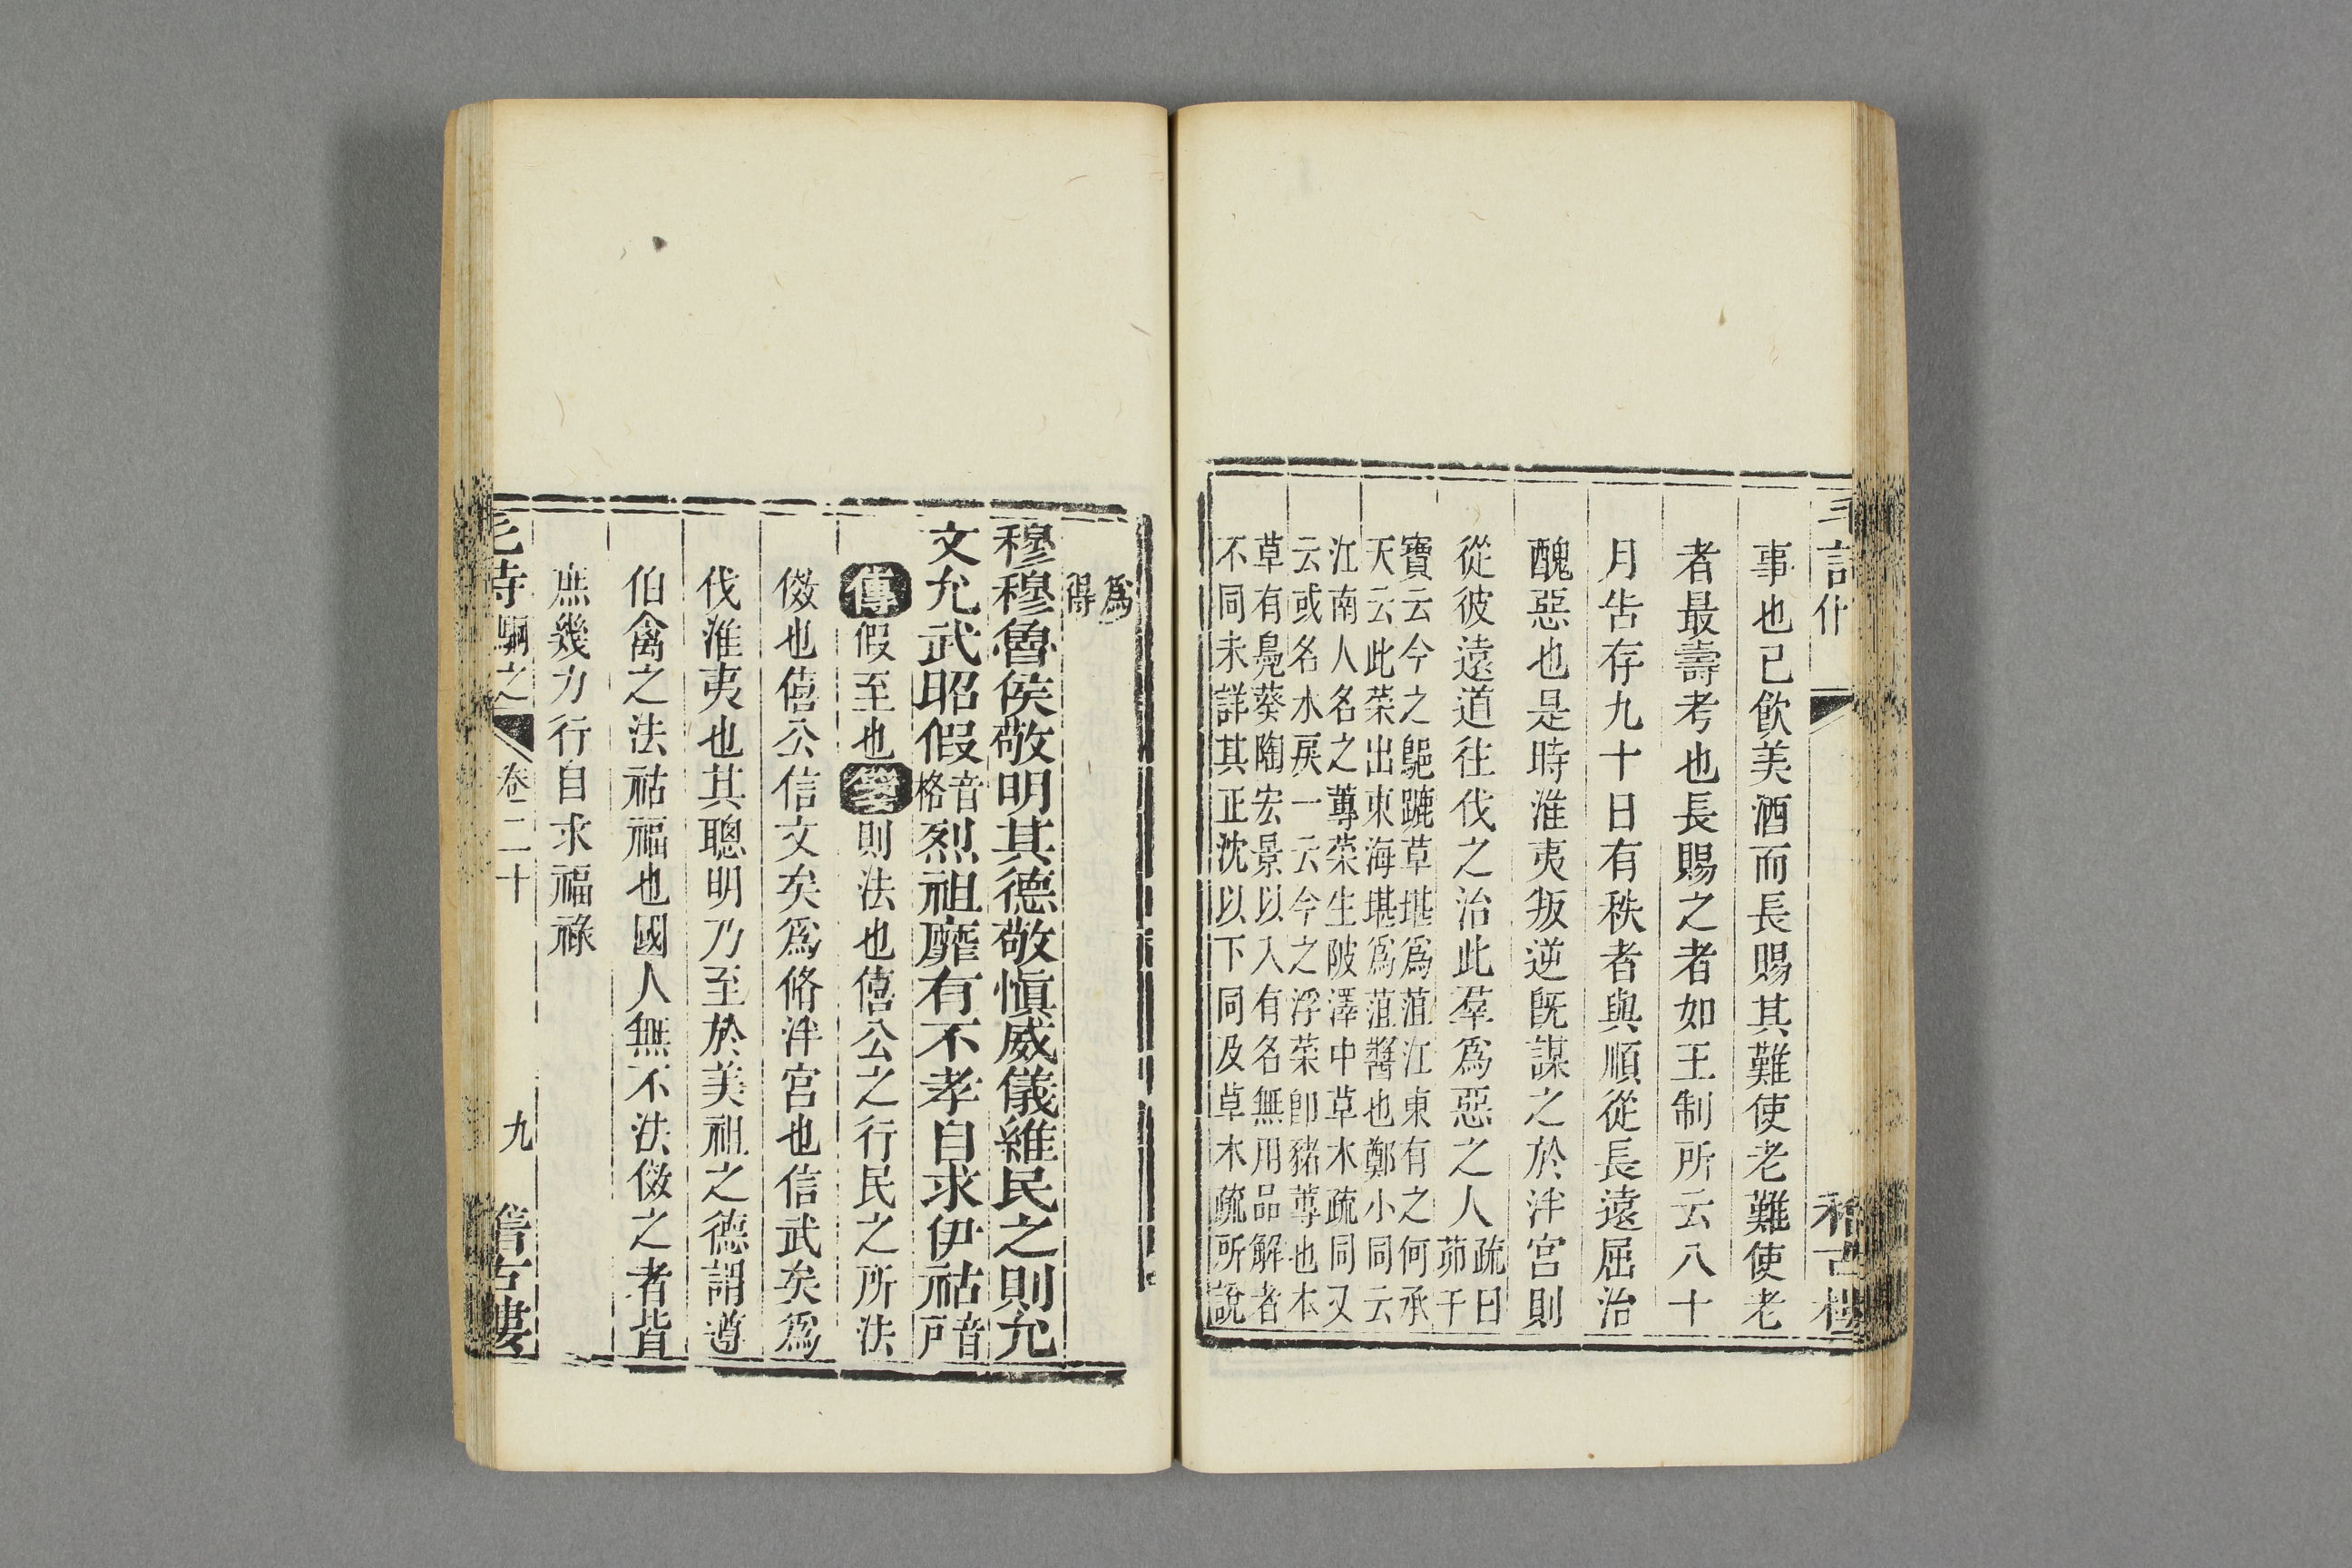 毛詩什 稽古樓
事也已飲美酒而長賜其難使老難使老
者最壽考也長賜之者如王制所云八十
月告存九十日有秩者與順從長遠屈治
醜惡也是時淮夷叛逆旣謀之於泮宮則
從彼遠道往伐之治此羣爲惡之人疏曰
茆干
寶云今之草堪爲菹江東有之何承
天云此菜出東海堪爲菹醬也鄭小同云
江南人名之蓴菜生陂澤中草木疏同又
云或名水戾一云今之浮菜卽豬蓴也本
草有鳧葵陶宏景以入有名無用品解者
不同未詳其正沈以下同及草木疏所說
爲
得
穆穆魯侯敬明其德敬愼威儀維民之則允
文允武昭假音格烈祖靡有不孝自求伊祜音戶
傳假至也箋則法也僖公之行民之所法
傚也僖公信文矣爲脩泮宮也信武矣爲
伐淮夷也其聰明乃至於美祖之德謂遵
伯禽之法祜福也國人無不法傚之者皆
庶幾力行自求福祿
毛詩駉之 卷二十 九 稽古樓